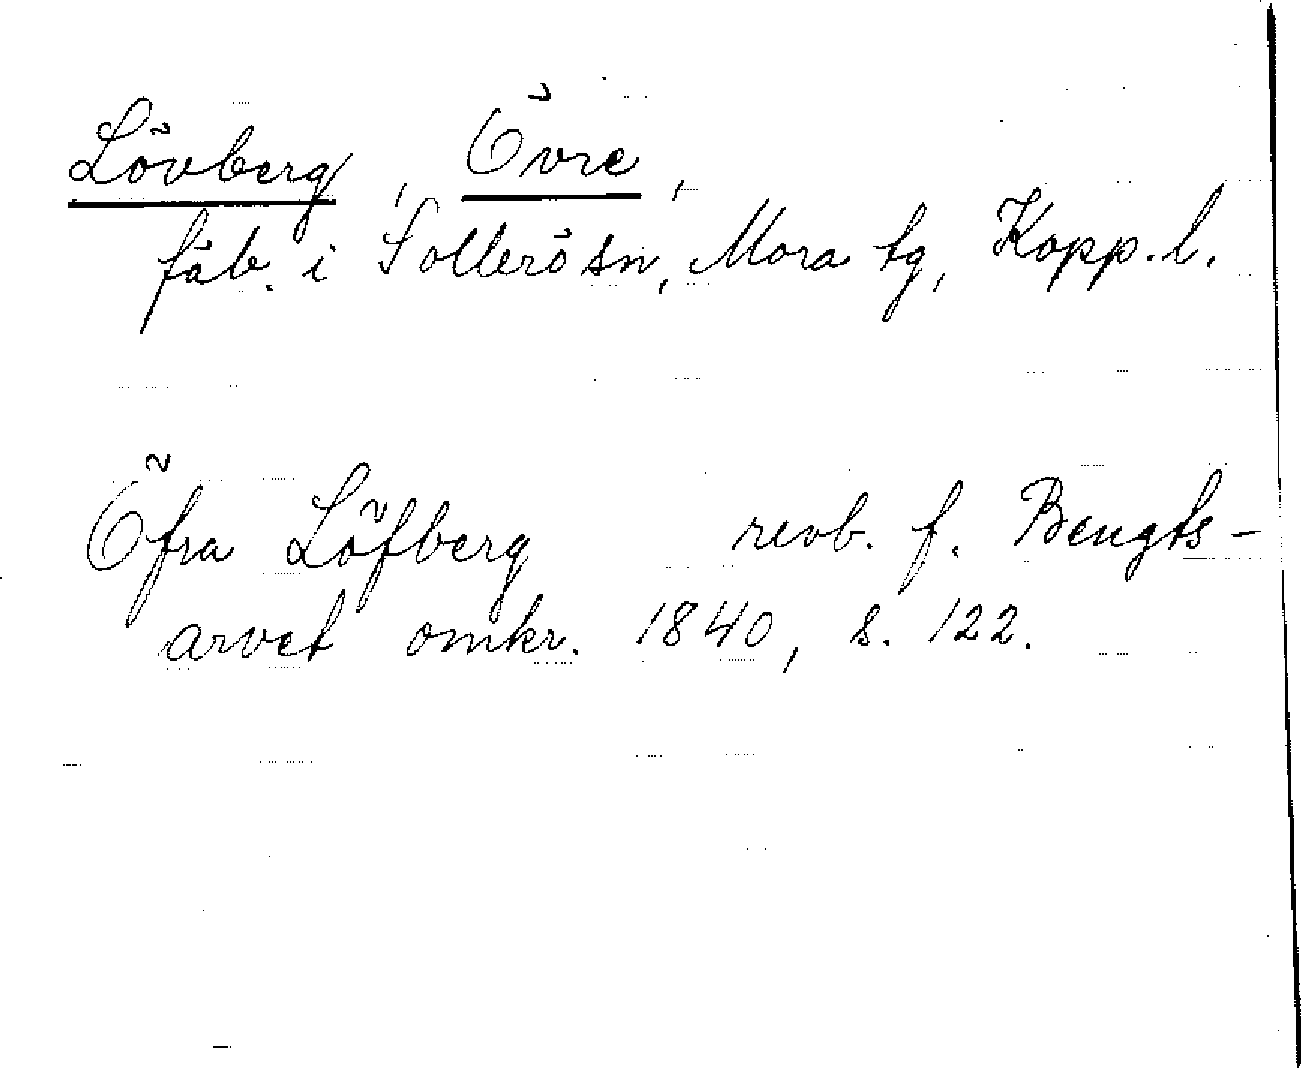 Lövberg, Övre,
fäb. i Sollerö sn, Mora tg, Kopp. l.
Öfra Löfberg revb. f. Bengts-
arvet omkr. 1840, s. 122.